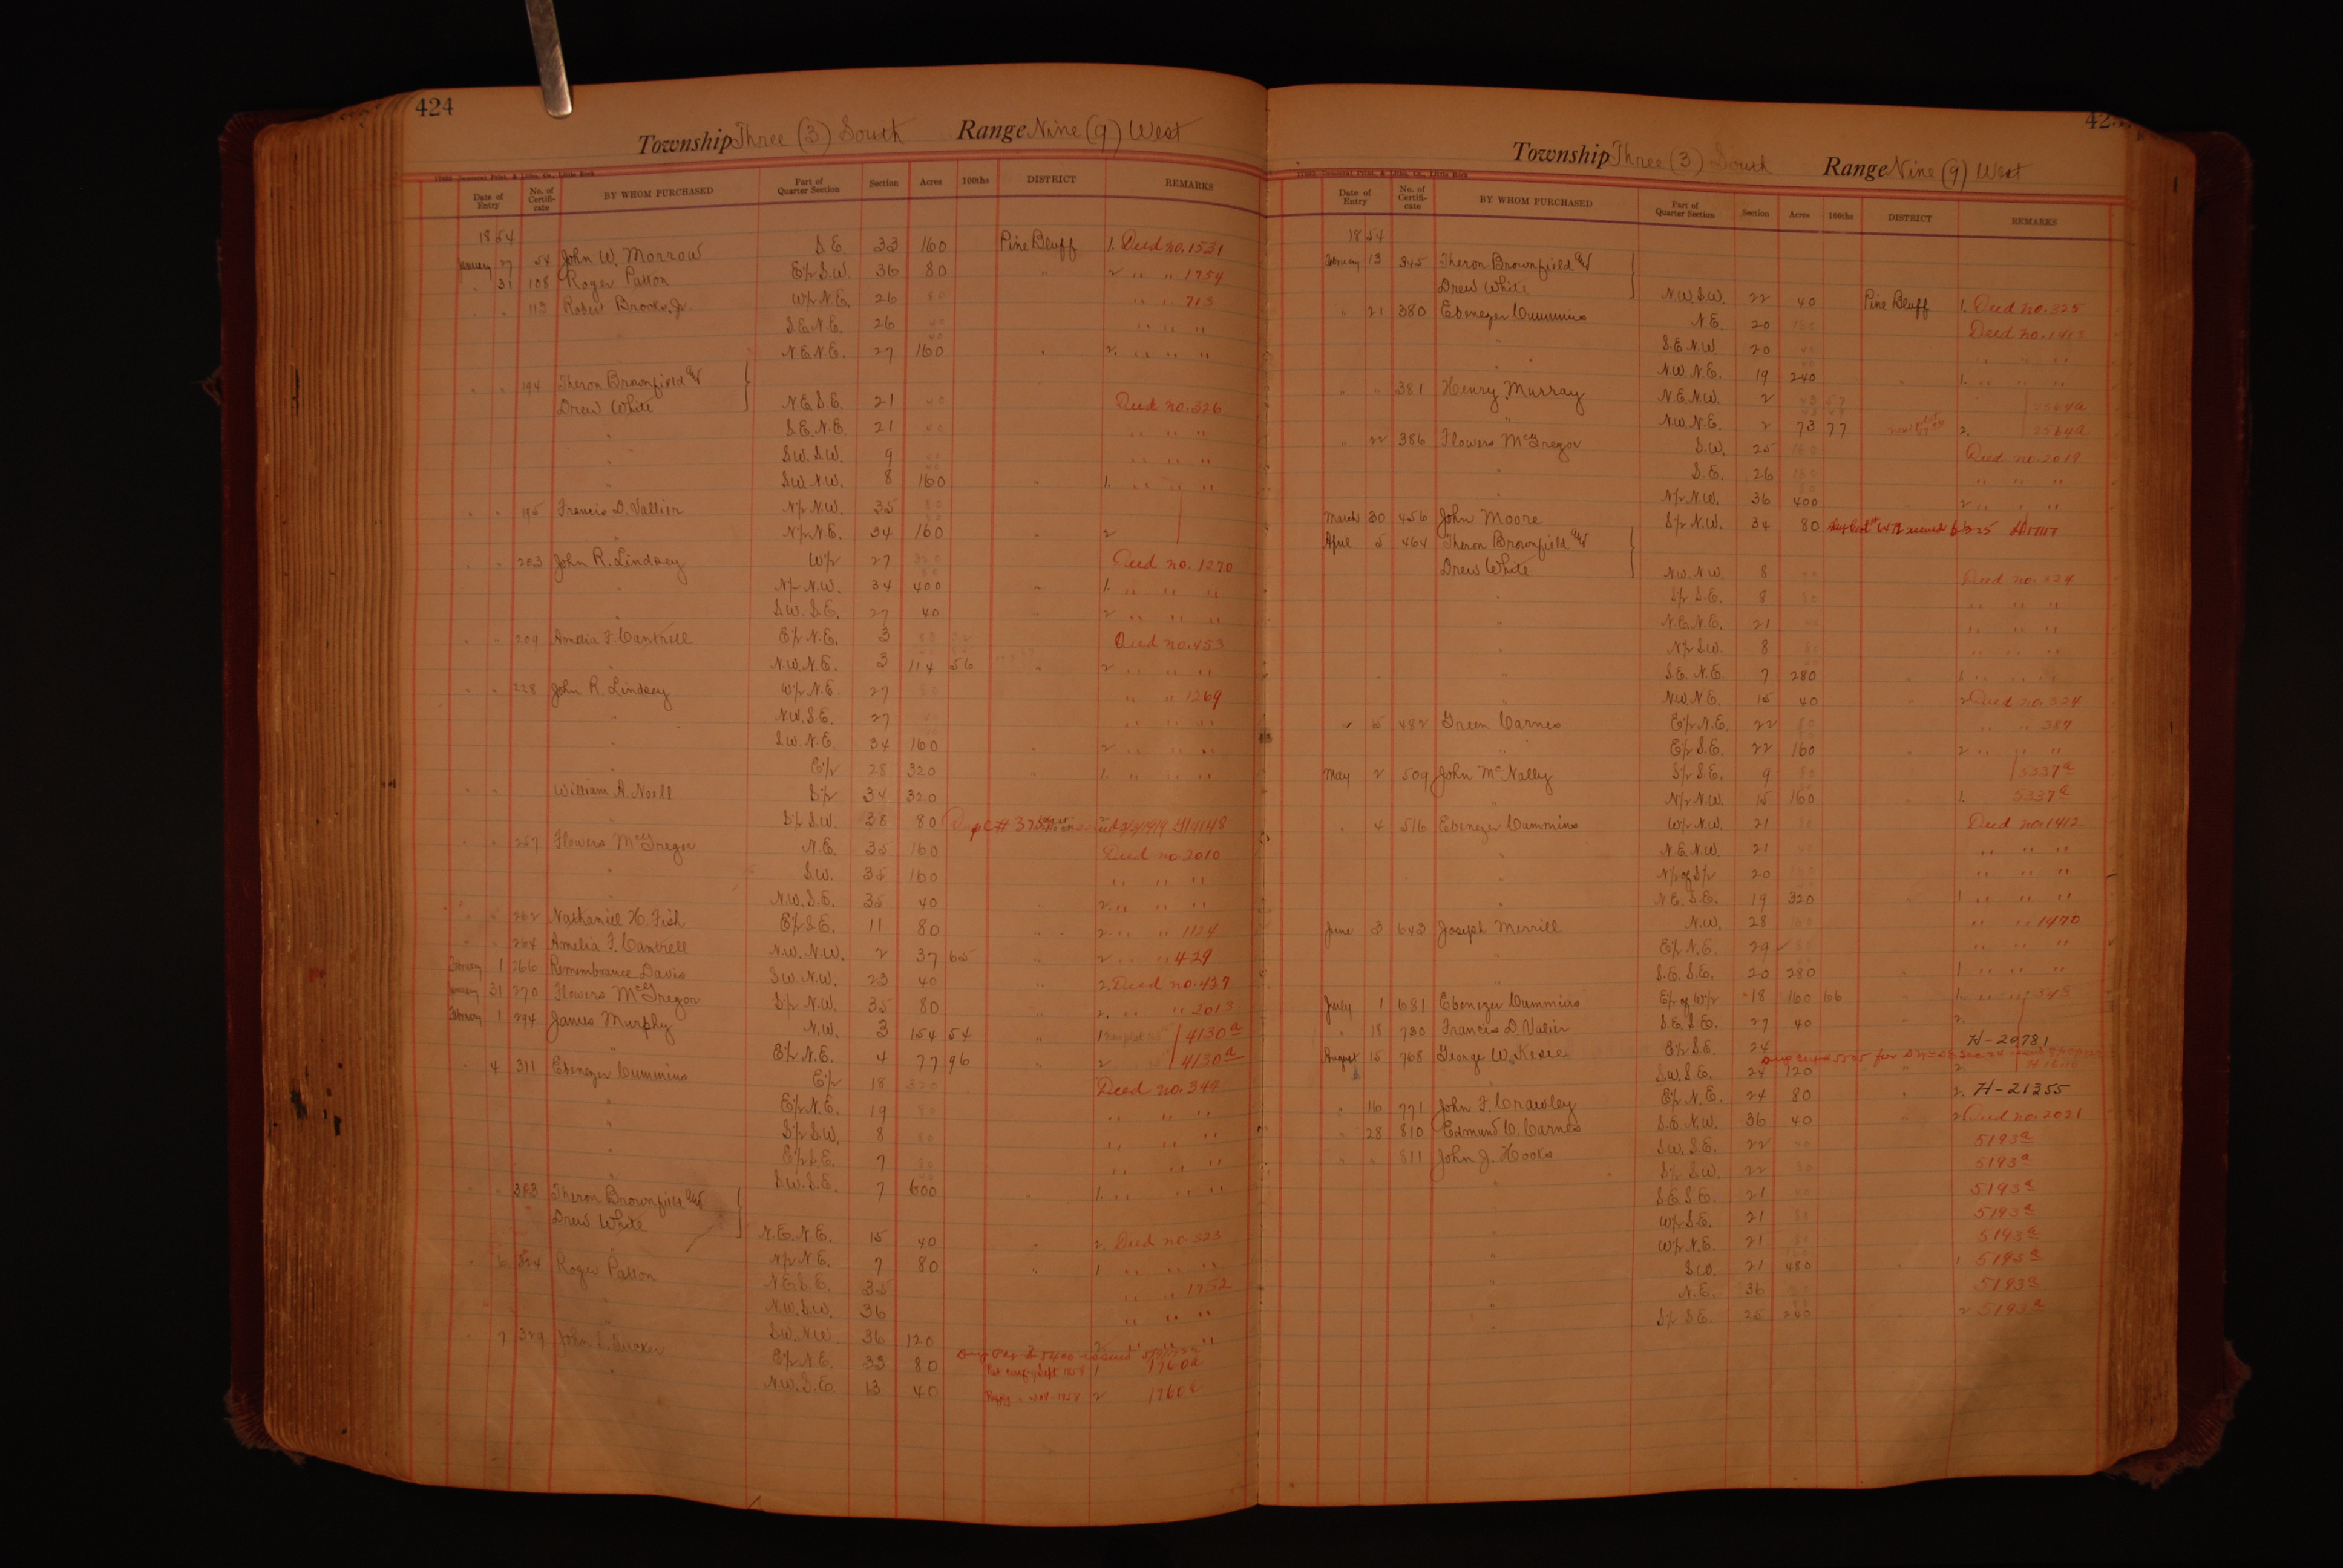 424
Township Three (3) South Range Nine (9) West
Date of Entry No. of Certifi-cate BY WHOM PURCHASED Part of Quarter Section Section Acres 100ths DISTRICT REMARKS
1854
January 27 54 John W. Morrow S.E. 33 160 Pine Bluff 1. Deed no. 1531
" 31 108 Roger Patton E½ S.W. 36 80 " 2 " " 1754
" " 113 Robert Brooks, Jr. W½ N.E. 26 80 " " 713
" S.E. N.E. 26 40 " " "
" N.E. N.E. 27 160 " 2. " " "
" " 194 Theron Brownfield and
Drew White N.E. S.E. 21 40 Deed no. 326
" S.E. N.E. 21 40 " " "
" S.W. S.W. 9 40 " " "
" S.W. N.W. 8 160 " 1. " " "
" " 195 Francis D. Vallier N½ N.W. 35 80
" N½ N.E. 34 160 " 2
" " 203 John R. Lindsey W½ 27 320 Deed no. 1270
" N½ N.W. 34 400 " 1. " " "
" S.W. S.E. 27 40 " 2 " " "
" " 209 Amelia F. Cantrell E½ N.E. 3 Deed no. 453
" N.W. N.E. 3 114 56 " 2 " " "
" " 228 John R. Lindsey W½ N.E. 27 80 " " 1269
" N.W. S.E. 27 " " "
" S.W. N.E. 34 160 " 2 " " "
" E½ 28 320 " 1. " " "
" " William A. Noell S½ 34 320
" S½ S.W. 38 80
" " 257 Flowers McGregor N.E. 35 160 Deed no. 2010
" S.W. 35 160 " " "
" N.W. S.E. 35 40 " 2. " " "
" " 262 Nathaniel H. Fish E½ S.E. 11 80 " 2. " " 1124
" " 264 Amelia F. Cantrell N.W. N.W. 2 37 65 " 2 " " 429
February 1 266 Remembrance Davis S.W. N.W. 23 40 " 2. Deed no. 427
January 31 270 Flowers McGregor S½ N.W. 35 80 " 2. " " 2013
February 1 294 James Murphy N.W. 3 154 54 " 1 4130a
" E½ N.E. 4 77 96 " 2 4130a
" 4 311 Ebenezer Cummins E½ 18 320 Deed no. 349
" E½ N.E. 19 80 " " "
" S½ S.W. 8 80 " " "
" E½ S.E. 7 80 " " "
" S.W. S.E. 7 600 " 1. " " "
" " 323 Theron Brownfield and
Drew White N.E. N.E. 15 40 " 2. Deed no. 323
" N½ N.E. 7 80 " 1 " " "
" 6 324 Roger Patton N.E. S.E. 35 " " 1752
" N.W. S.W. 36 " " "
" S.W. N.W. 36 120 2 " "
" 7 329 John S. Tucker E½ N.E. 33 80 1 1760a
" N.W. S.E. 13 40 2 1760a
Township Three (3) South Range Nine (9) West
Date of Entry No. of Certifi-cate BY WHOM PURCHASED Part of Quarter Section Section Acres 100ths DISTRICT REMARKS
1854
February 13 345 Theron Brownfield and
Drew White N.W. S.W. 22 40 Pine Bluff 1. Deed no. 325
" 21 380 Ebenezer Cummins N.E. 20 160 Deed no. 1413
" S.E. N.W. 20 40 " " "
" N.W. N.E. 19 240 " 1. " " "
" " 381 Henry Murray N.E. N.W. 2 2564a
" N.W. N.E. 2 73 77 2. 2564a
" 22 386 Flowers McGregor S.W. 25 160 Deed no. 2019
" S.E. 26 160 " " "
" N½ N.W. 36 400 " 2 " " "
March 30 456 John Moore S½ N.W. 34 80
April 5 464 Theron Brownfield and
Drew White N.W. N.W. 8 40 Deed no. 324
" S½ S.E. 8 80 " " "
" N.E. N.E. 21 40 " " "
" N½ S.W. 8 80 " " "
" S.E. N.E. 7 280 " 1. " " "
" N.W. N.E. 15 40 " 2 Deed no. 324
" 15 482 Green Carnes E½ N.E. 22 80 " " 387
" E½ S.E. 22 160 " 2 " " "
May 2 509 John McNally S½ S.E. 9 80 5337a
" N½ N.W. 15 160 " 1. 5337a
" 4 516 Ebenezer Cummins W½ N.W. 21 80 Deed no. 1412
" N.E. N.W. 21 40 " " "
" N½ of S½ 20 " " "
" N.E. S.E. 19 320 " 1 " " "
June 3 643 Joseph Merrill N.W. 28 160 " " 1470
" E½ N.E. 29 80 " " "
" S.E. S.E. 20 280 " 1 " " "
July 1 681 Ebenezer Cummins E½ of W½ 18 160 66 " 1. " "
" 18 730 Francis D. Valier S.E. S.E. 27 40 " 2.
August 15 768 George W. E½ S.E. 24 H-20781
" S.W. S.E. 24 120 " 2.
" 16 771 John F. Crawley E½ N.E. 24 80 " 2. H-21355
" 28 810 Edmund C. Carnes S.E. N.W. 36 40 " 2 Deed no. 2021
" " 811 John J. Hooks S.W. S.E. 22 40 5193a
" S½ S.W. 22 80 5193a
" S.E. S.E. 21 40 5193a
" W½ S.E. 21 80 5193a
" W½ N.E. 21 80 5193a
" S.W. 21 480 " 1 5193a
" N.E. 36 5193a
" S½ S.E. 25 240 2 5193a